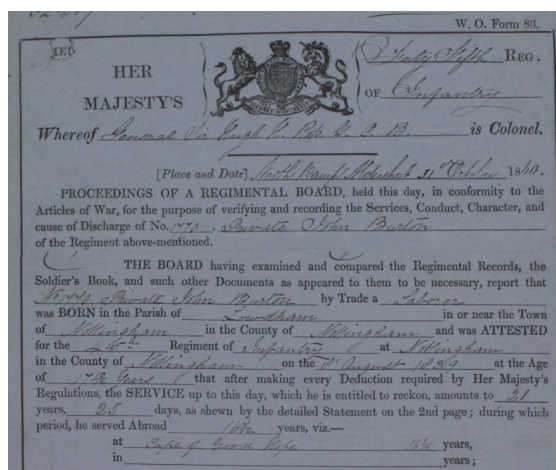 W. O. Form 83.
HER MAJESTY'S Forty Fifth REG.
OF Infantry
Whereof General Sir Hugh H. Rose G. C. B. is Colonel.
[Place and Date] North Camp Aldershot 31st October 1860.
PROCEEDINGS OF A REGIMENTAL BOARD, held this day, in conformity to the
Articles of War, for the purpose of verifying and recording the Services, Conduct, Character, and
cause of Discharge of No. 1770. Private John Burton
of the Regiment above-mentioned.
THE BOARD having examined and compared the Regimental Records, the
Soldier's Book, and such other Documents as appeared to them to be necessary, report that
Private John Burton by Trade a Laborer
was BORN in the Parish of Lowdham in or near the Town
of Nottingham in the County of Nottingham and was ATTESTED
for the 45th Regiment of Infantry at Nottingham
in the County of Nottingham on the August 1839 at the Age
of 17 Years that after making every Deduction required by Her Majesty's
Regulations, the SERVICE up to this day, which he is entitled to reckon, amounts to 21
years, 25 days, as shewn by the detailed Statement on the 2nd page; during which
period, he served Abroad 16½ years, viz.—
at Cape of Good Hope 16½ years,
in years;